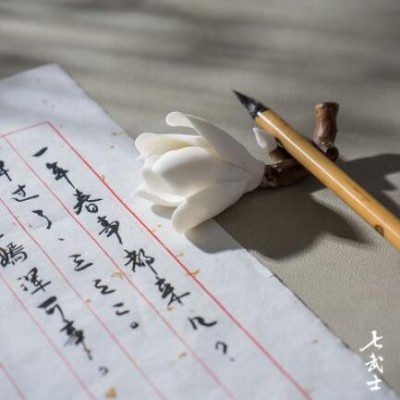 一年春事都来几？
早过了、三之二。
嫣浑可事。
七武士